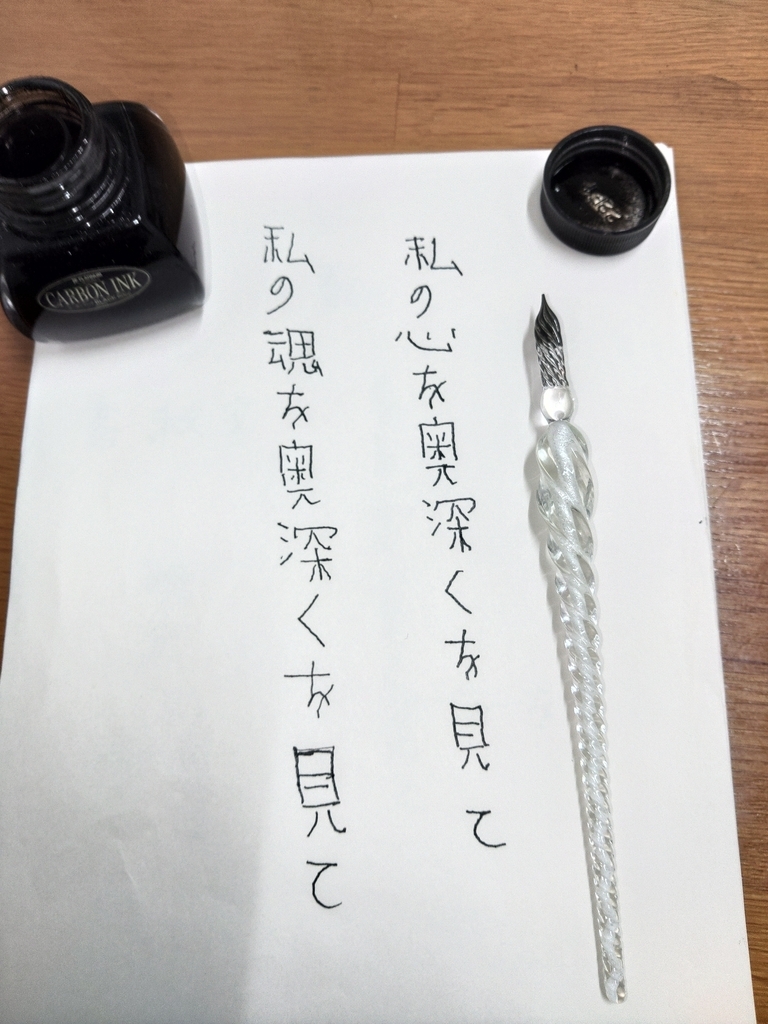 私の心を奥深くを見て
私の魂を奥深くを見て
CARBON INK